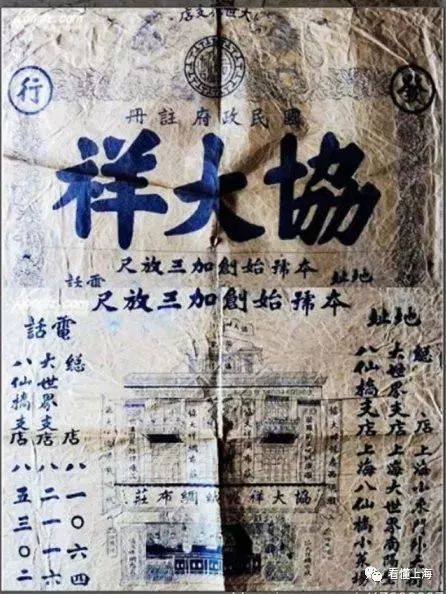 大世界支店
發行
國民政府註冊
協大祥
本號始創加三放尺
地址
電話
本號始創加三放尺
地址
總店 上海小東門外
大世界支店 上海大世界南
八仙橋支店 上海八仙橋小菜場
協大祥 綢布莊
電話
總店 八一〇六四
大世界支店 八二一一六
八仙橋支店 八五三〇二
看懂上海